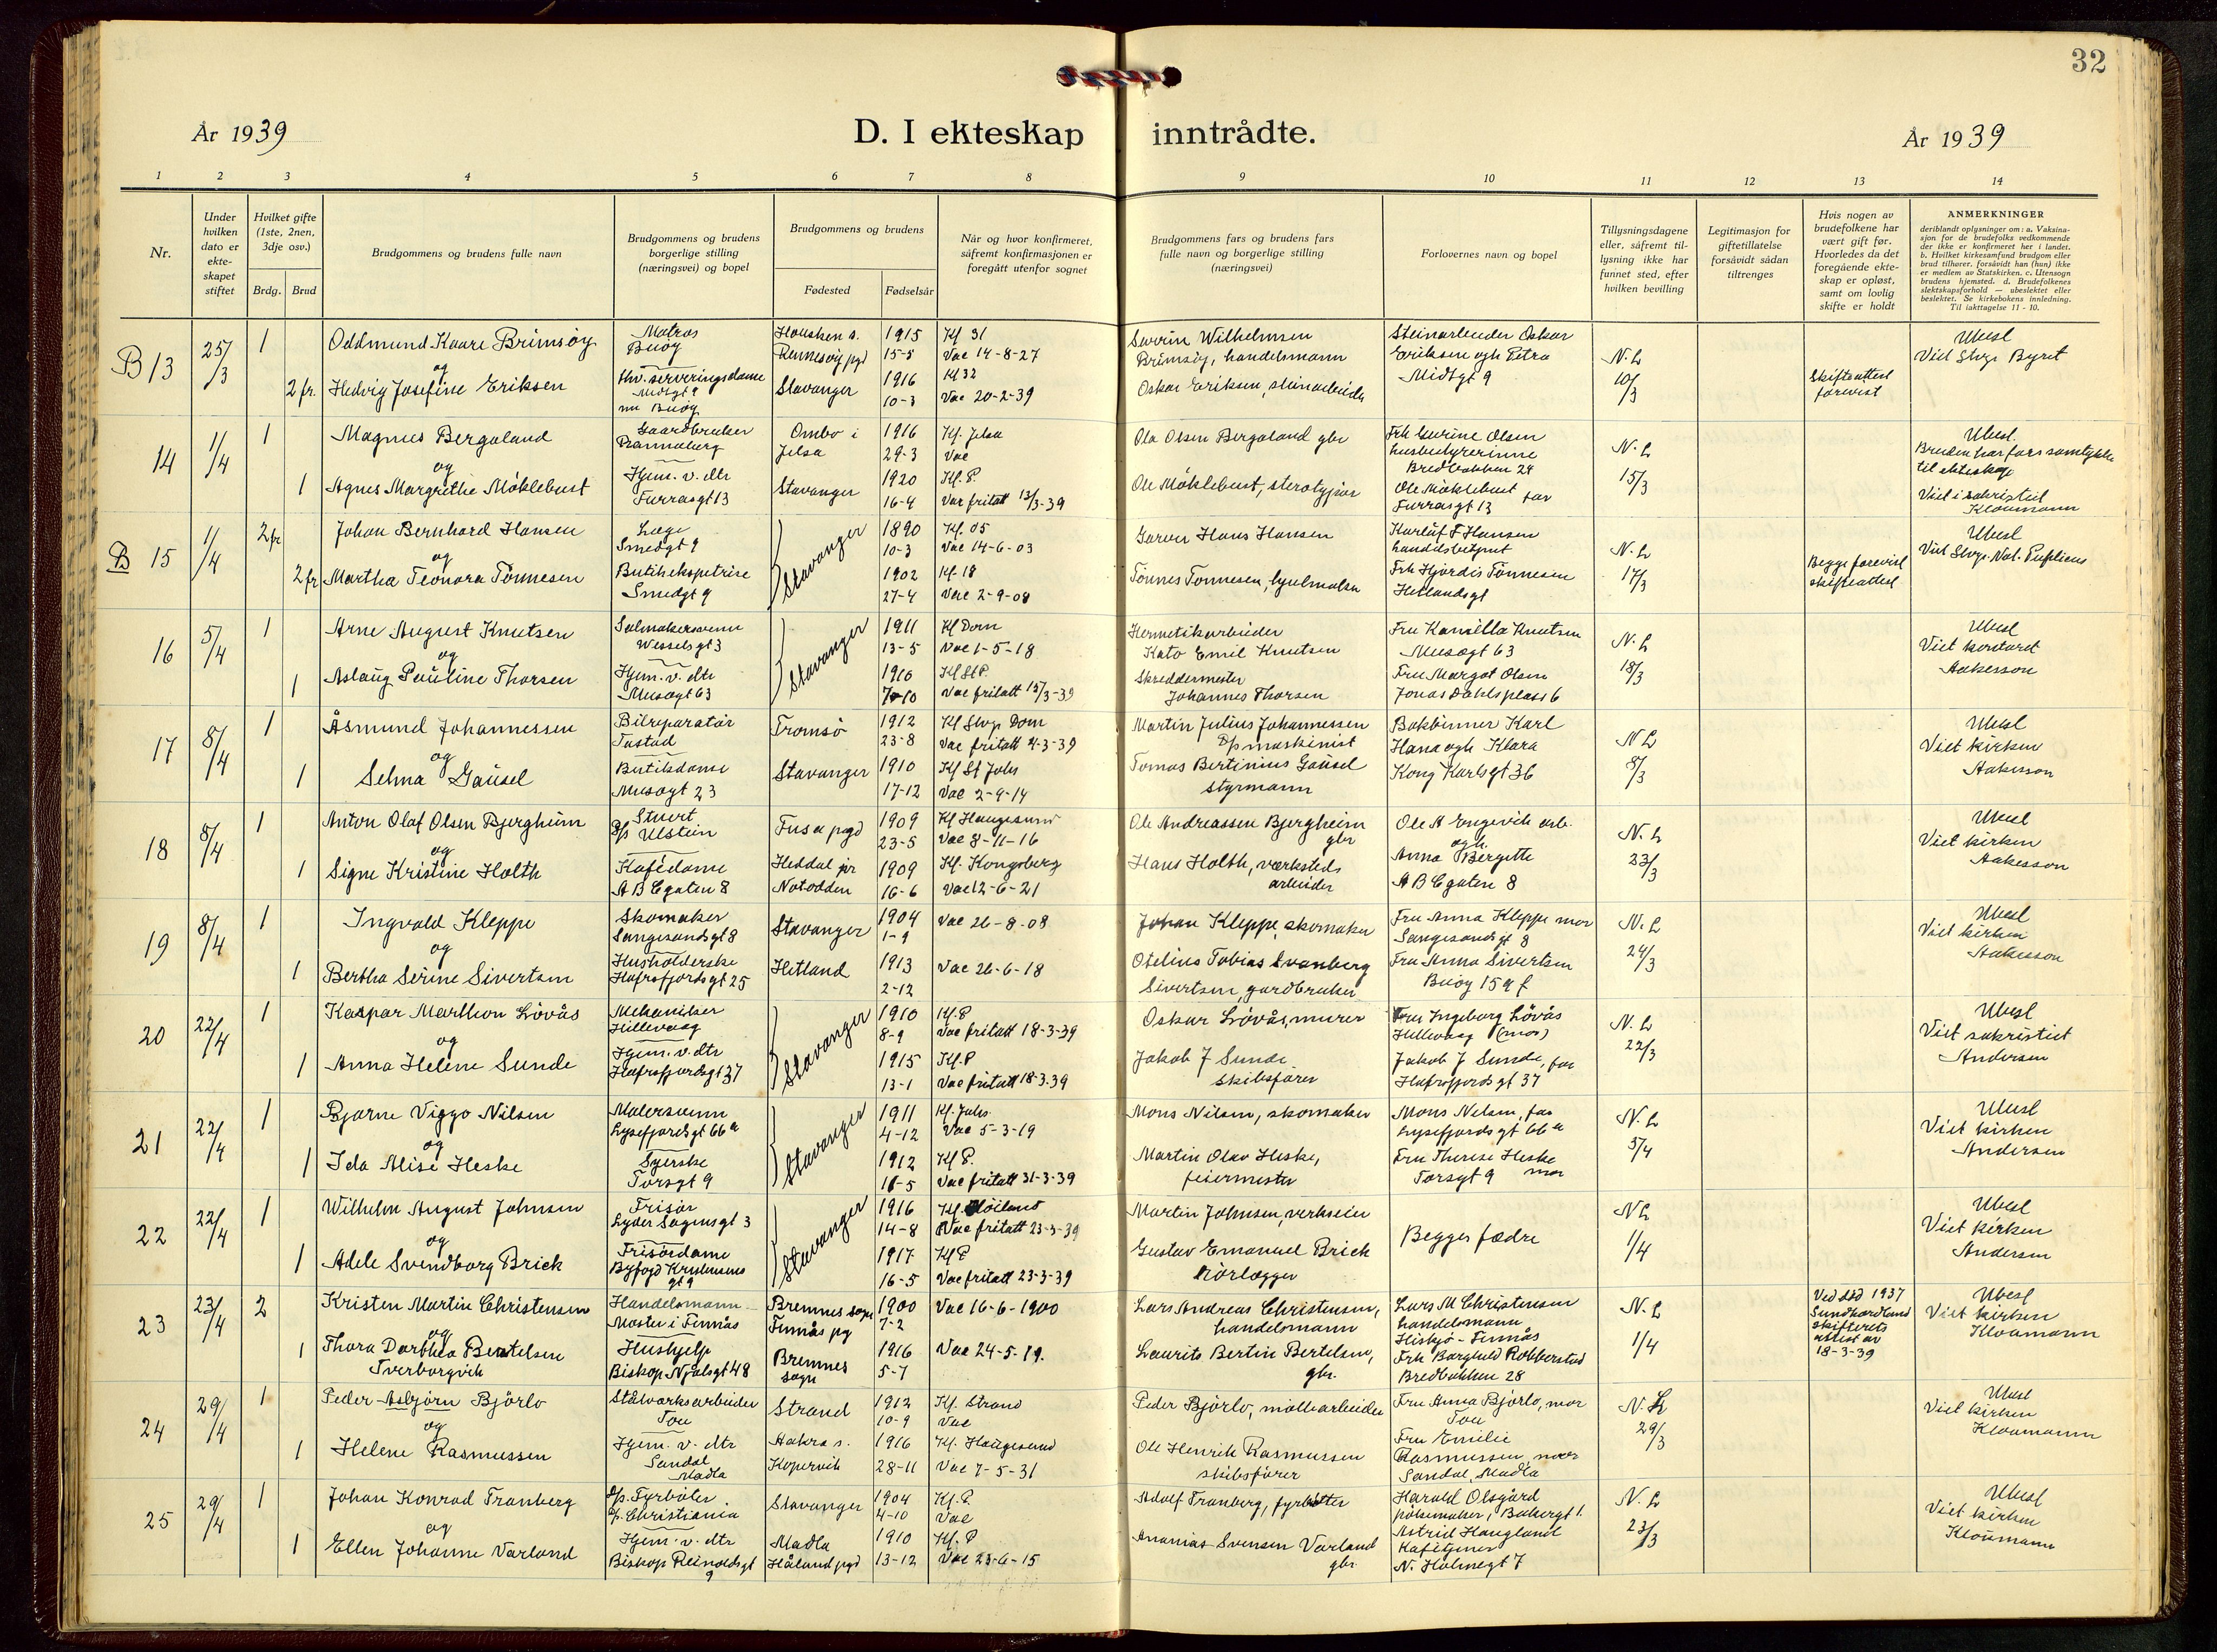 32
År 1939
D. I ekteskap inntrådte.
År 1939
1 2 3 4 5 6 7 8 9 10 11 12 13 14
Nr.
Under hvilken dato er ekte-skapet stiftet
Hvilket gifte (1ste, 2nen, 3dje osv.)
Brdg. Brud
Brudgommens og brudens fulle navn
Brudgommens og brudens borgerlige stilling (næringsvei) og bopel
Brudgommens og brudens
Fødested Fødselsår
Når og hvor konfirmeret, såfremt konfirmasjonen er foregått utenfor sognet
Brudgommens fars og brudens fars fulle navn og borgerlige stilling (næringsvei)
Forlovernes navn og bopel
Tillysningsdagene eller, såfremt til-lysning ikke har funnet sted, efter hvilken bevilling
Legitimasjon for giftetillatelse forsåvidt sådan tiltrenges
Hvis nogen av brudefolkene har vært gift før. Hvorledes da det foregående ekte-skap er opløst, samt om lovlig skifte er holdt
ANMERKNINGER
deriblandt oplysninger om: a. Vaksina-sjon for de brudefolks vedkommende der ikke er konfirmeret her i landet. b. Hvilket kirkesamfund brudgom eller brud tilhører, forsåvidt han (hun) ikke er medlem av Statskirken. c. Utensogn brudens hjemsted. d. Brudefolkenes slektskapsforhold — ubeslektet eller beslektet. Se kirkebokens innledning. Til iakttagelse 11 - 10.
B 13 25/3 1 Oddmund Kaare Brimsøy Matros Buøy Hausken s. Rennesøy pgd 1915 15-5 Kf 31 Vac 14-8-27
Severin Wilhelmsen Brimsøy, handelsmann Steinarbeider Oskar Eriksen ogh Petra Midtgt 9 N.L 10/3 Skifteattest forevist Ubesl Viet Stvgr Byret
og
2 fr. Hedvig Josefine Eriksen fhv. serveringsdame Midtgt 9 nu Buøy Stavanger 1916 10-3 Kf 32 Vac 20-2-39
Oskar Eriksen, steinarbeider
14 1/4 1 Magnus Bergaland Gaardbruker Ombo i Jelsa 1916 29-3 Kf. Jelsa Vac
Ola Olsen Bergaland gbr Frk Gurine Olsen husbestyrerinne Bredbakken 24 N.L 15/3 Ubesl. Bruden har fars samtykke til ekteskap Viet i sakristiet Kloumann
og
1 Agnes Margrethe Möklebust Hjem. v. dtr Furrasgt 13 Stavanger 1920 16-4 Kf. P. Vac fritatt 13/3-39
Ole Möklebust, sterotypör Ole Möklebust far Furrasgt 13
B 15 1/4 2 fr Johan Bernhard Hansen Læge Smedgt 9 Stavanger 1890 10-3 Kf. 05 Vac 14-6-03
Garver Hans Hansen Karluf F Hansen handelsbetjent N.L 17/3 Begge forevist skifteattest Ubesl Viet Stvgr. Not. Publicus
og
2 fr Martha Teonora Tönnesen Butikekspetrise Smedgt 9 1902 27-4 Kf. 18 Vac 2-9-08
Tönnes Tonnesen, hjulmaker Frk Hjördis Tönnesen Hetlandsgt
16 5/4 1 Arne August Knutsen Salmakersvenn Wesselsgt 3 Stavanger 1911 13-5 Kf Dom Vac 1-5-18
Hermetikarbeider Kato Emil Knutsen Fru Kamilla Knutsen Musægt 63 N.L 18/3 Ubesl Viet kontoret Aakesson
og
1 Aslaug Pauline Thorsen Hjem. v. dtr Musægt 63 1916 7-10 Kf St P. Vac fritatt 15/3-39
Skreddermester Johannes Thorsen Fru Margot Olsen Jonas Dahlsplass 6
17 8/4 1 Åsmund Johannessen Bilreparatör Tastad Tromsö 1912 23-8 Kf Stvgr Dom Vac fritatt 4-3-39
Martin Julius Johannessen maskinist Bokbinner Karl Hana ogh Klara Kong Karlsgt 36 N L 8/3 Ubesl Viet kirken Aakesson
og
1 Selma Gausel Butikdame Musægt 23 Stavanger 1910 17-12 Kf St Johs Vac 2-9-14
Tomas Bertinius Gausel styrmann
18 8/4 1 Anton Olaf Olsen Bjergheim Stuert D/s Ulstein Fusa pgd 1909 23-5 Kf Haugesund Vac 8-11-16
Ole Andreassen Bjergheim gbr Ole A Engevik arb. ogh. Anna Bergette A B C gaten 8 N.L 23/3 Ubesl Viet kirken Aakesson
og
1 Signe Kristine Holth Kafédame A B C gaten 8 Heddal pr Notodden 1909 16-6 Kf. Kongsberg Vac 12-6-21
Hans Holth, værksteds arbeider
19 8/4 1 Ingvald Kleppe Skomaker Sangesandsgt 8 Stavanger 1904 1-9 Vac 26-8-08
Johan Kleppe, skomaker Fru Anna Kleppe mor Sangesandsgt 8 N.L 24/3 Ubesl Viet kirken Aakesson
og
1 Bertha Serine Sivertsen Husholderske Hafrsfjordsgt 25 Hetland 1913 2-12 Vac 26-6-18
Otelius Tobias Svanberg Sivertsen, gardbruker Fru Anna Sivertsen Buøy 159 f
20 22/4 1 Kaspar Marthon Lövås Mekaniker Hillevaag Stavanger 1910 8-9 Kf. P Vac fritatt 18-3-39
Oskar Lövås, murer Fru Ingeborg Lövås Hillevaag (mor) N.L 22/3 Ubesl Viet sakristiet Andersen
og
1 Anna Helene Sunde Hjem. v. dtr Hafrsfjordsgt 37 1915 13-1 Kf. P Vac fritatt 18-3-39
Jakob J Sunde skibsförer Jakob J Sunde, far Hafrsfjords gt 37
21 22/4 1 Bjarne Viggo Nilsen Malersvenn Lysefjordsgt 66 a Stavanger 1911 4-12 Kf. Johs. Vac 5-3-19
Mons Nilsen, skomaker Mons Nilsen, far Lysefjordsgt 66 a N.L 5/4 Ubesl Viet kirken Andersen
og
1 Ida Alise Heske Syerske Torsgt 9 1912 16-5 Kf P. Vac fritatt 31-3-39
Martin Olav Heske, feiermester Fru Therese Heske Torsgt 9 mor
22 22/4 1 Wilhelm August Johnsen Frisör Lyder Sagensgt 3 Stavanger 1916 14-8 Kf. Höiland Vac fritatt 23-3-39
Martin Johnsen, verkseier Begges fædre N L 1/4 Ubesl Viet kirken Andersen
og
1 Adele Svendborg Brick Frisördame Byfogd Kristensens gt 9 1917 16-5 Kf P Vac fritatt 23-3-39
Gustav Emanuel Brick Rörlægger
23 23/4 2 Kristen Martin Christensen Handelsmann Moster i Finnås Bremnes sogn Finnås pg 1900 7-2 Vac 16-6-1900
Lars Andreas Christensen, handelsmann Lars M Christensen handelsmann Hiskjo - Finnås N.L 1/4 Ved död 1937 Sundhordland skifterets attest av 18-3-39 Ubesl Viet kirken Kloumann
og
1 Thora Dorthea Bertelsen Tverborgvik Hushjelp Biskop Njalsgt 48 Bremnes sogn 1916 5-7 Vac 24-5-19.
Laurits Bertin Bertelsen, gbr. Frk Borghild Robberstad Bredbakken 28
24 29/4 1 Peder Asbjörn Björlo Stålværksarbeider Tou Strand 1912 10-9 Kf. Strand Vac
Peder Björlo, möllearbeider Fru Anna Björlo, mor Tou N.L 29/3 Ubesl Viet kirken Kloumann
og
1 Helene Rasmussen Hjem. v. dtr Sandal Madla Aakra s. Kopervik 1916 28-11 Kf. Haugesund Vac 7-5-31
Ole Henrik Rasmussen skibsförer Fru Emilie Rasmussen, mor Sandal, Madla
25 29/4 1 Johan Konrad Tranberg Fyrböter Christiania Stavanger 1904 4-10 Kf. P. Vac
Adolf Tranberg, fyrböter Harald Olsgård pölsemaker, Bakergt 1. N.L 23/3 Ubesl Viet kirken Kloumann
og
1 Ellen Johanne Varland Hjem. v. dtr Biskop Reinaldsgt 9 Madla Håland pgd 1910 13-12 Kf. P Vac 23-6-15
Ananias Svensen Varland gbr. Astrid Haugland Kafétjener N. Holmegt 7